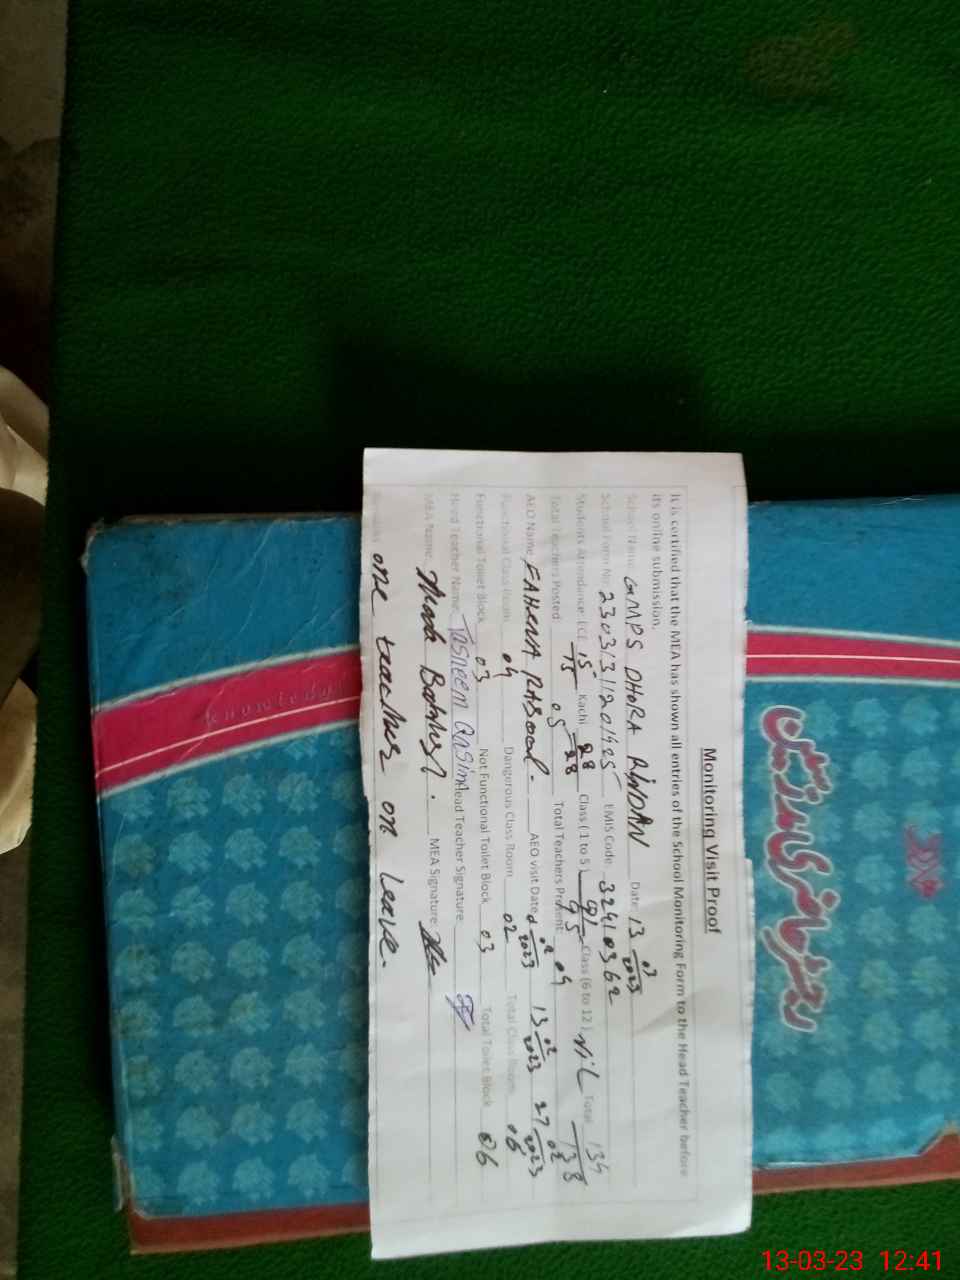 Monitoring Visit Proof
It is certified that the MEA has shown all entries of the School Monitoring Form to the Head Teacher before
its online submission.
School Name GMPS DHORA RINDAN Date 13 03/2023
School Form No: 23031311201925 EMIS Code 32410362
Students Attendance: ECE 15/15 Kachi 28/28 Class (1 to 5) 91/95 Class (6 to 12) NIL Total 134/138
Total Teachers Posted: 05 Total Teachers Present: 04
AEO Name FAHEMA RASOOL. AEO visit Date 02/2023 13 02/2023 27 02/2023
Functional Class Room 04 Dangerous Class Room 02 Total Class Room 06
Functional Toilet Block 03 Not Functional Toilet Block 03 Total Toilet Block 06
Head Teacher Name: Tasneem Qasim Head Teacher Signature
MEA Name MEA Signature
one teacher on leave.
Knowledge
رجسٹر حاضری مدرسین
13-03-23 12:41